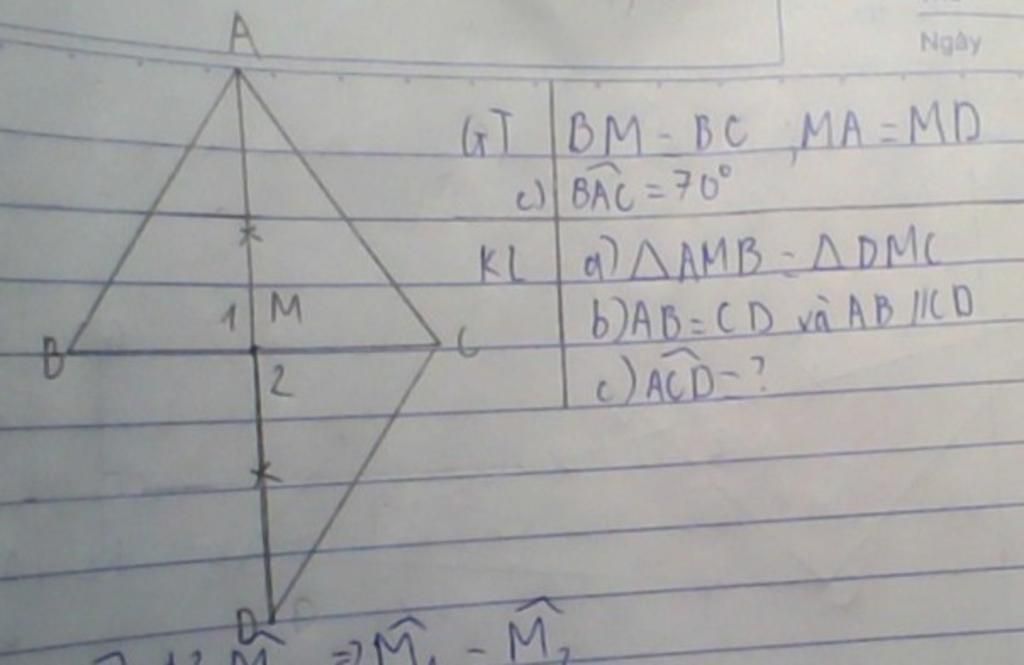 Ngày
A
GT BM = BC, MA = MD
c) BAC = 70°
KL a) ΔAMB = ΔDMC
1 M
b) AB = CD và AB // CD
B C
2
c) ACD = ?
D
=> M₁ = M₂